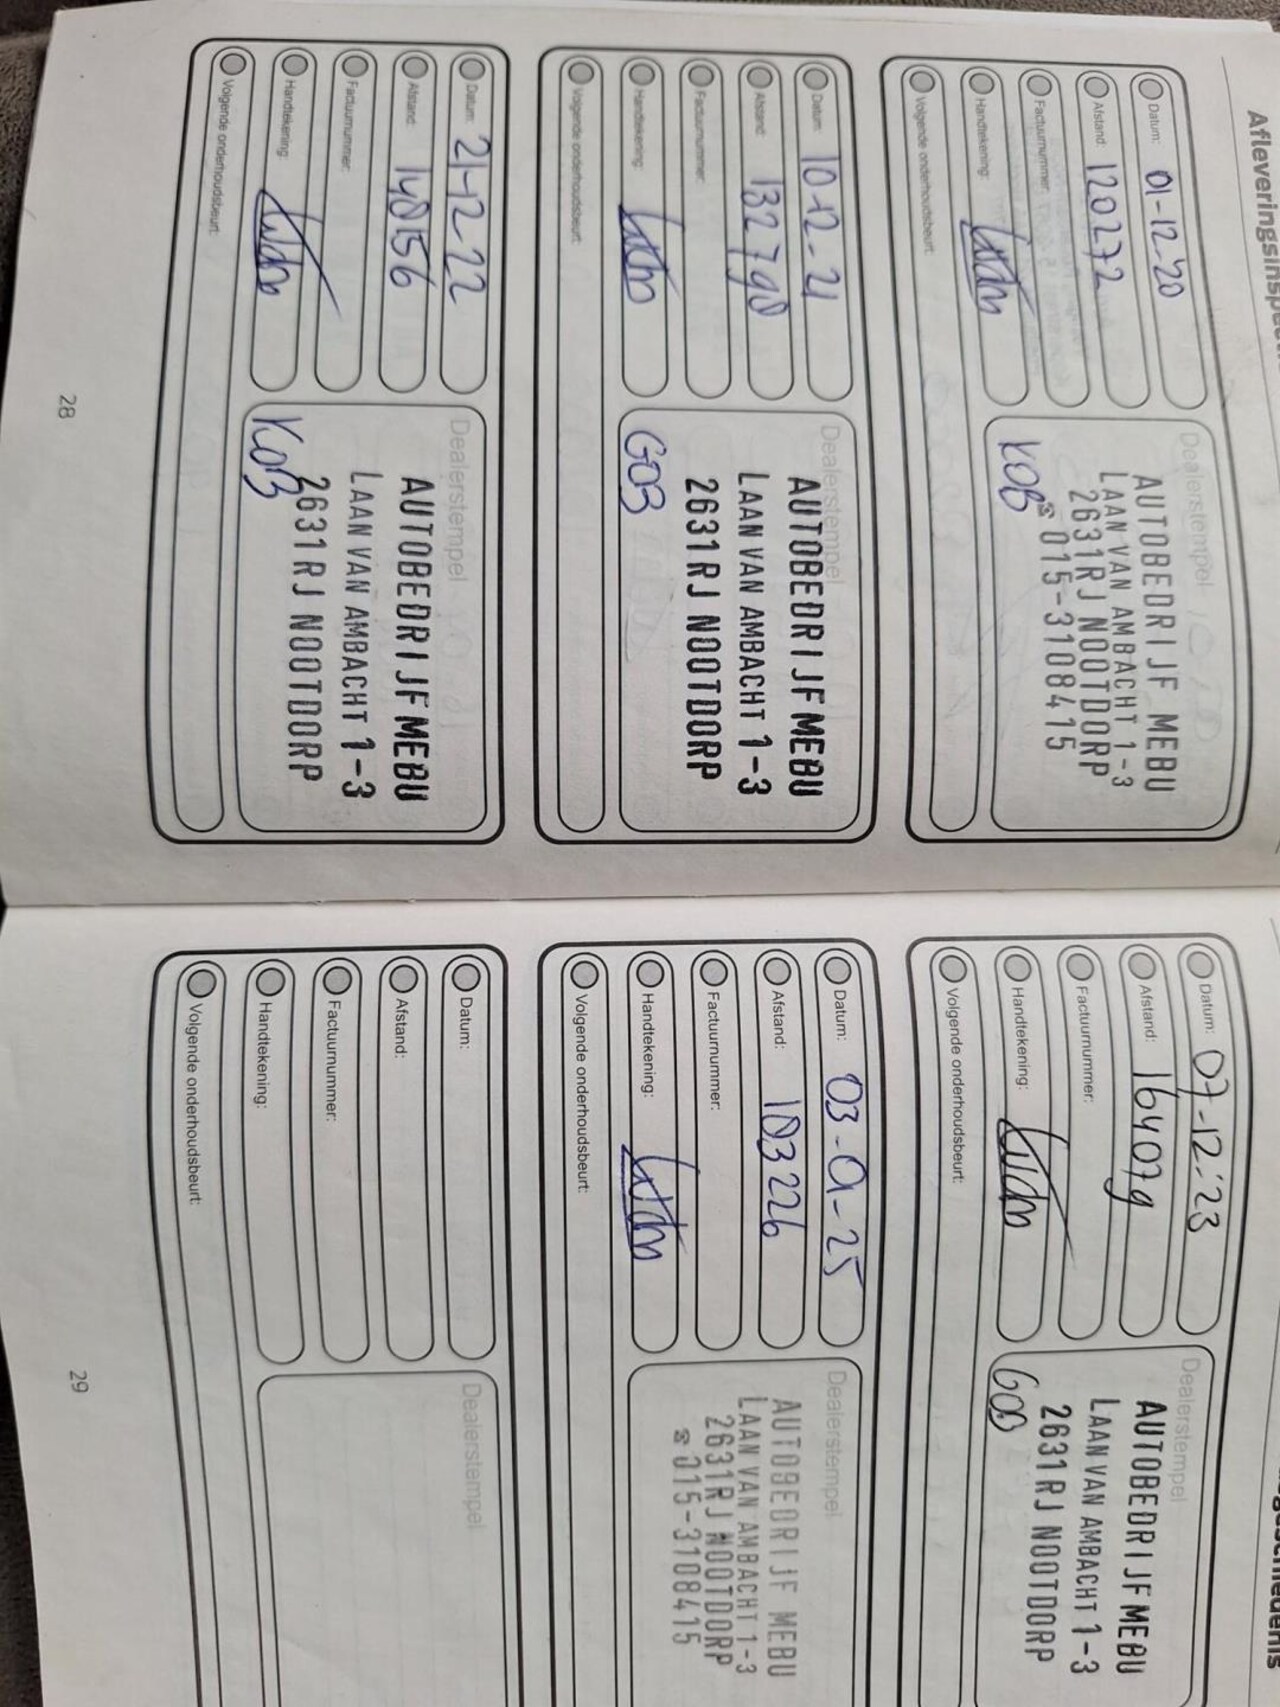 Afleveringsinspe
Datum: 01-12-20
Afstand: 120272
Factuurnummer:
Handtekening:
Volgende onderhoudsbeurt:
Dealerstempel
AUTOBEDRIJF MEBU
LAAN VAN AMBACHT 1-3
2631RJ NOOTDORP
☎ 015-3108415
KOB
Datum: 10-12-21
Afstand: 132798
Factuurnummer:
Handtekening:
Volgende onderhoudsbeurt:
Dealerstempel
AUTOBEDRIJF MEBU
LAAN VAN AMBACHT 1-3
2631RJ NOOTDORP
GOB
Datum: 21-12-22
Afstand: 148156
Factuurnummer:
Handtekening:
Volgende onderhoudsbeurt:
Dealerstempel
AUTOBEDRIJF MEBU
LAAN VAN AMBACHT 1-3
2631RJ NOOTDORP
KOB
28
Datum: 07-12-'23
Afstand: 164079
Factuurnummer:
Handtekening:
Volgende onderhoudsbeurt:
Dealerstempel
AUTOBEDRIJF MEBU
LAAN VAN AMBACHT 1-3
2631RJ NOOTDORP
Datum: 03-01-25
Afstand: 183226
Factuurnummer:
Handtekening:
Volgende onderhoudsbeurt:
Dealerstempel
AUTOBEDRIJF MEBU
LAAN VAN AMBACHT 1-3
2631RJ NOOTDORP
☎ 015-3108415
Datum:
Afstand:
Factuurnummer:
Handtekening:
Volgende onderhoudsbeurt:
Dealerstempel
29